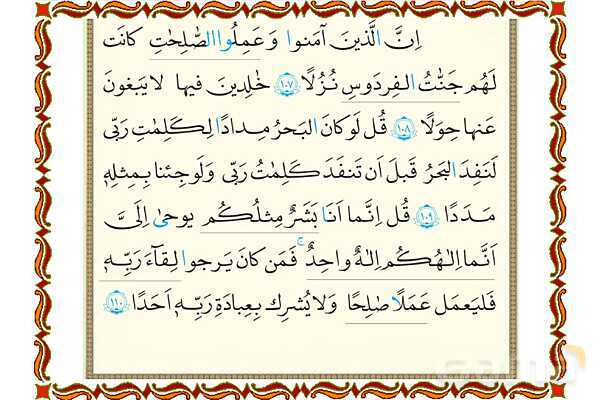 اِنَّ الَّذينَ آمَنوا وَ عَمِلُوا الصّٰلِحٰتِ كانَت
لَهُم جَنّٰتُ الفِردَوسِ نُزُلًا ﴿١٠٧﴾ خٰلِدينَ فيها لا يَبغونَ
عَنها حِوَلًا ﴿١٠٨﴾ قُل لَو كانَ البَحرُ مِدادًا لِكَلِمٰتِ رَبّى
لَنَفِدَ البَحرُ قَبلَ اَن تَنفَدَ كَلِمٰتُ رَبّى وَ لَو جِئنا بِمِثلِه
مَدَدًا ﴿١٠٩﴾ قُل اِنَّما اَنَا بَشَرٌ مِثلُكُم يوحىٰ اِلَىَّ
اَنَّما اِلٰهُكُم اِلٰهٌ واحِدٌ ۚ فَمَن كانَ يَرجوا لِقاءَ رَبِّه
فَليَعمَل عَمَلًا صٰلِحًا وَلا يُشرِك بِعِبادَةِ رَبِّه اَحَدًا ﴿١١٠﴾